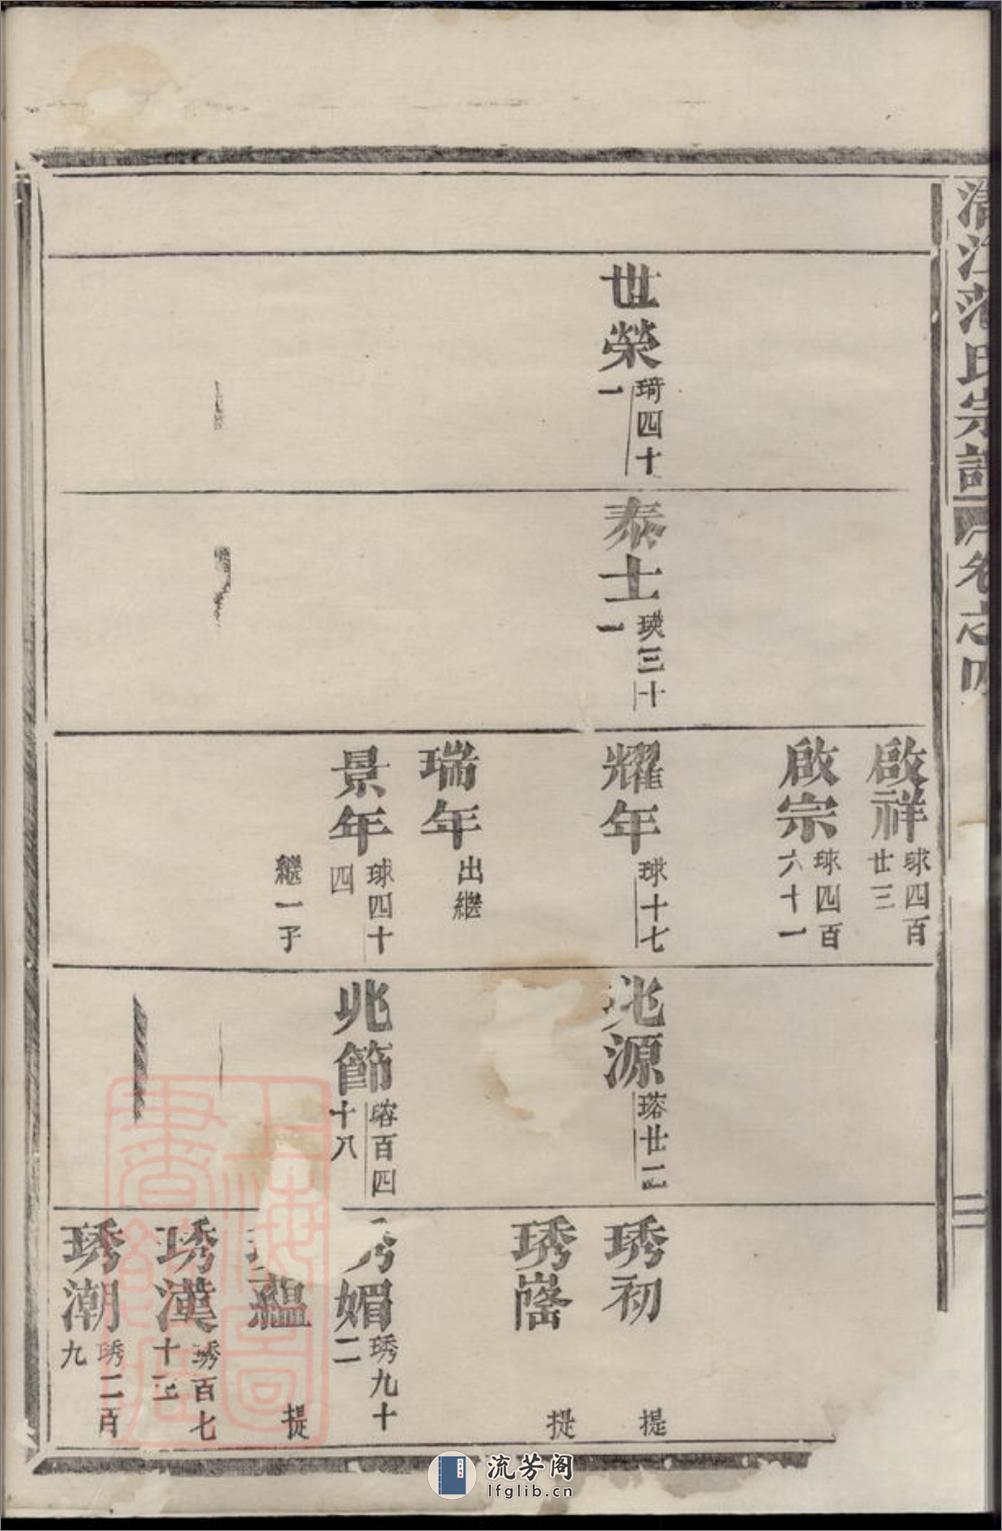 氏宗譜
卷之四
二
世榮 琦四十一
泰士 瑛三十一
啟祥 球四百廿三
啟宗 球四百六十一
耀年 球十七
瑞年 出繼
景年 球四十四
繼一子
兆源 瑹廿二
兆節 瑹百四十八
琇初 提
琇 提
媚 琇九十二
蘊 提
琇漢 琇百七十三
琇潮 琇二百九
上海圖書館藏
流芳阁
lfglib.cn